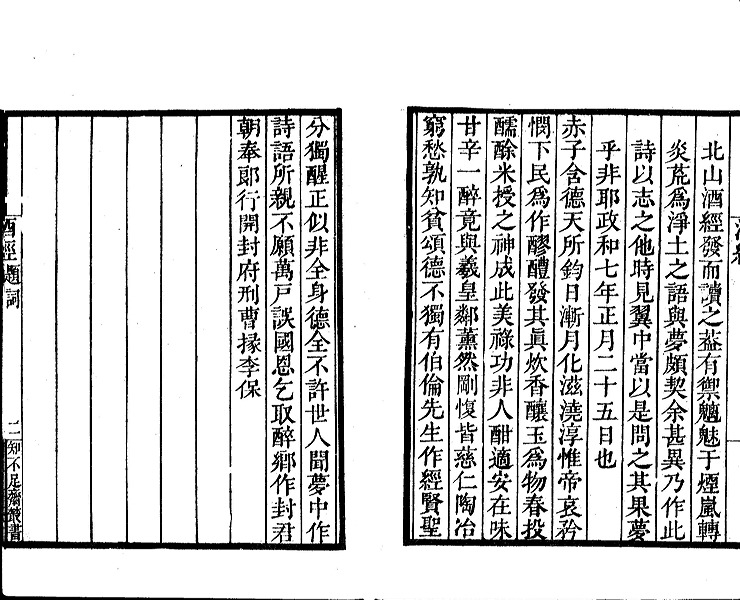 北山酒經發而讀之葢有禦魑魅于煙嵐轉
炎荒爲淨土之語與夢頗契余甚異乃作此
詩以志之他時見翼中當以是問之其果夢
乎非耶政和七年正月二十五日也
赤子含德天所鈞日漸月化滋澆淳惟帝哀矜
憫下民爲作醪醴發其眞炊香釀玉爲物春投
醹酴米授之神成此美祿功非人酣適安在味
甘辛一醉竟與羲皇鄰薰然剛愎皆慈仁陶冶
窮愁孰知貧頌德不獨有伯倫先生作經賢聖
分獨醒正似非全身德全不許世人聞夢中作
詩語所親不願萬戸誤國恩乞取醉鄕作封君
朝奉郞行開封府刑曹掾李保
酒經題詞
二
知不足齋叢書